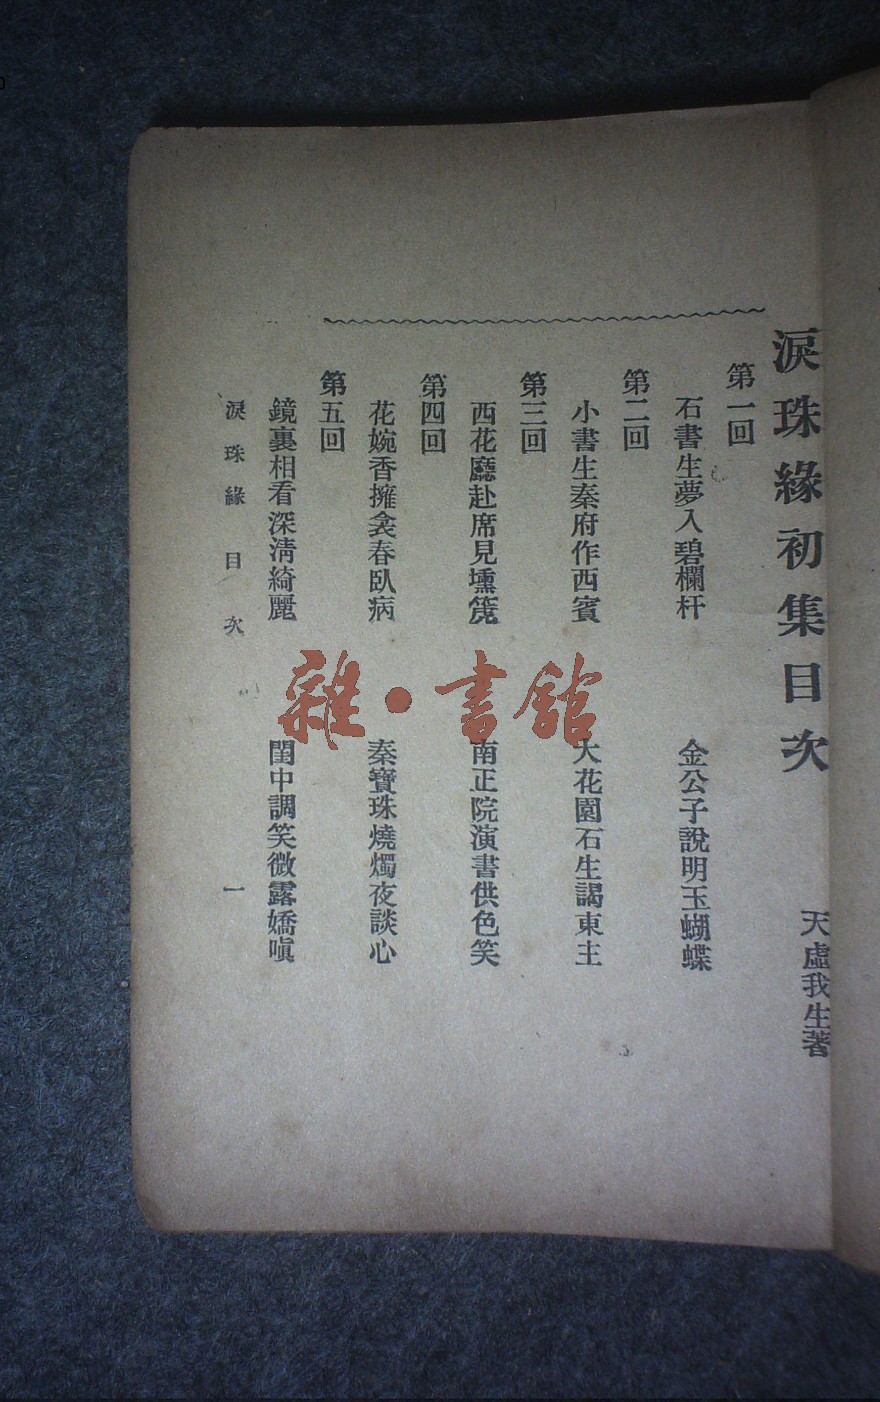 淚珠緣初集目次
天虛我生著
第一回
石書生夢入碧欄杆 金公子說明玉蝴蝶
第二回
小書生秦府作西賓 大花園石生謁東主
第三回
西花廳赴席見壎篪 南正院演書供色笑
第四回
花婉香擁衾春臥病 秦寶珠燒燭夜談心
第五回
鏡裏相看深淸綺麗 閨中調笑微露嬌嗔
淚珠緣 目次 一
雜·書館